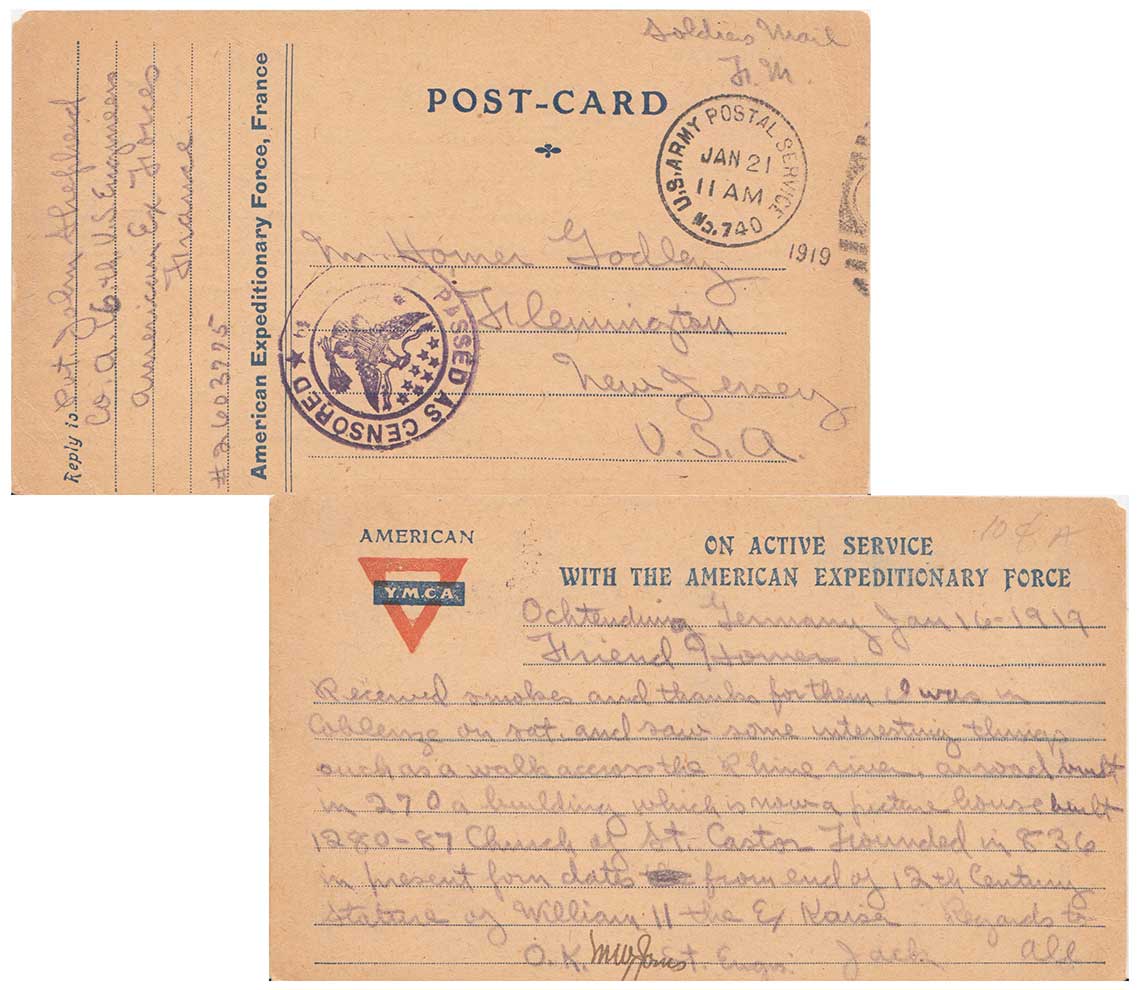 Soldiers Mail
F. M.
POST-CARD
U.S. ARMY POSTAL SERVICE
JAN 21
11 AM
740
1919
Mr. Homer Godley
Flemington
New Jersey
U.S.A.
PASSED AS CENSORED
American Expeditionary Force, France
Reply to Pvt. John Shepherd
Co. A. 6th U.S. Engineers
American Ex Forces
France.
#2603775
AMERICAN
Y.M.C.A.
10¢ A
ON ACTIVE SERVICE
WITH THE AMERICAN EXPEDITIONARY FORCE
Ochtendung Germany Jan 16-1919
Friend Homer
Received smokes and thanks for them I was in
Coblenze on sat. and saw some interesting things
such as a walk accross the Rhine river, a road built
in 270 a building which is now a picture house built
1280-87 Church of St. Castor Founded in 836
in present form dates from end of 12th Century
Statue of William II the Ex Kaiser Regards to
O.K. MW Jones Lt. Engrs. Jack All